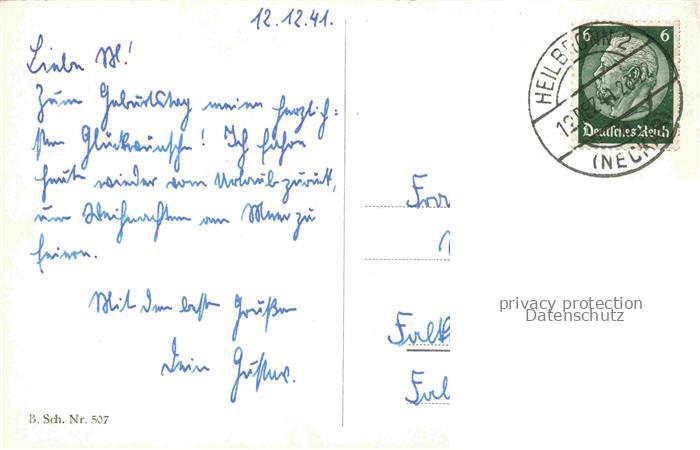 12.12.41.
Liebe M!
Zum Geburtstag meinen herzlich=
sten Glückwunsch! Ich fahre
heute wieder vom Urlaub zurück,
um Weihnachten am Meer zu
feiern.
Mit den besten Grüßen
Dein Gustav.
B. Sch. Nr. 507
6 6
Deutsches Reich
HEILBRONN 2
(NECKAR)
privacy protection
Datenschutz